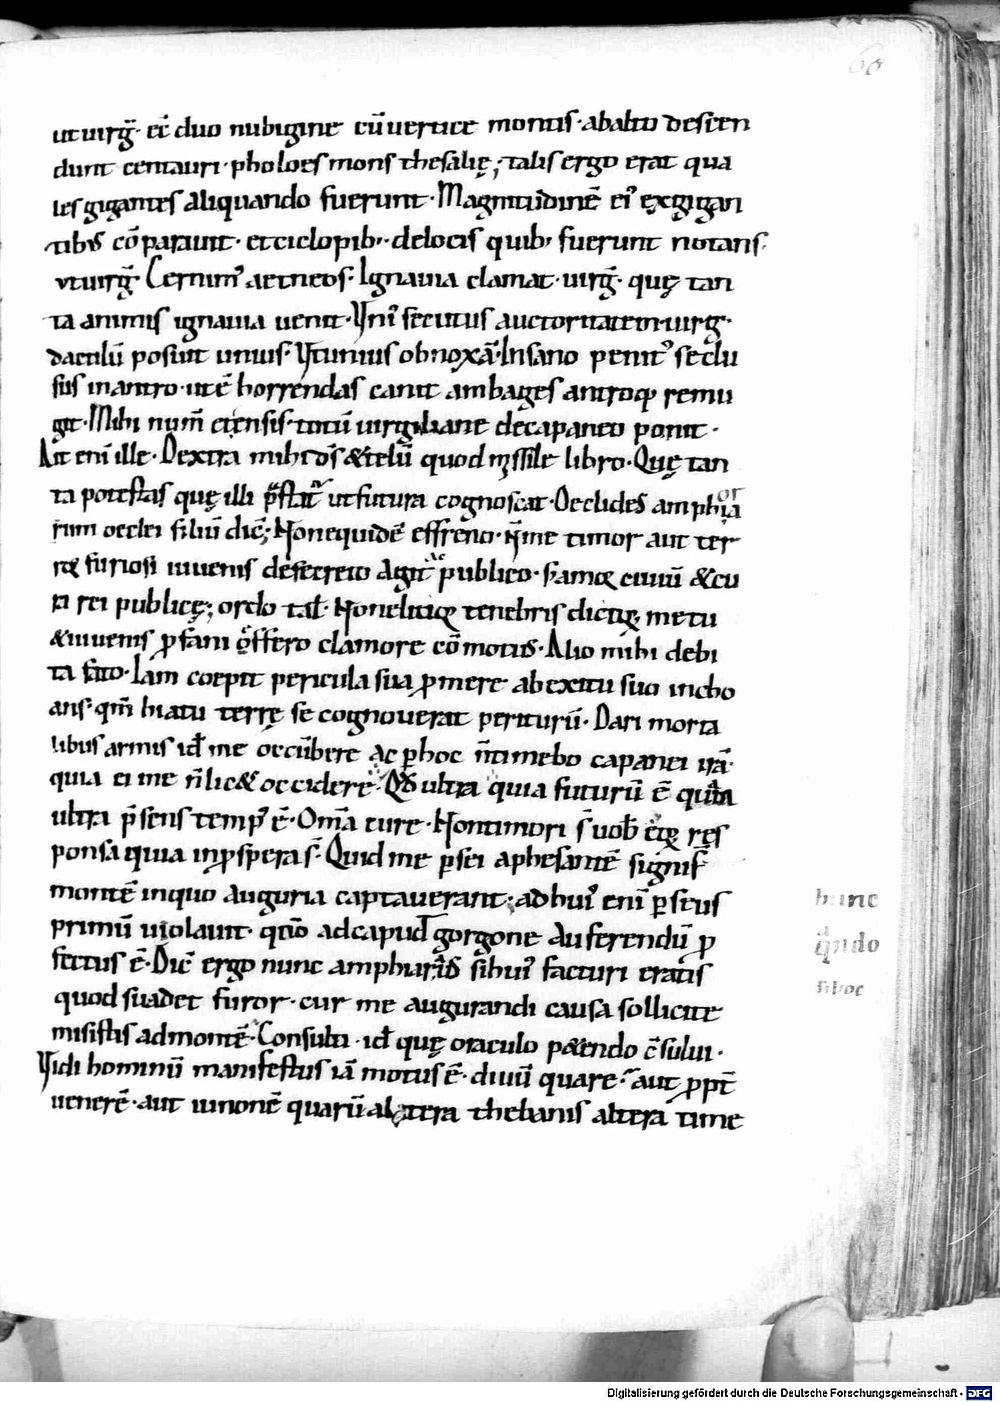 68
ut uirḡ· c̄ duo nubigine cū uertice montis· abalto descen
dunt centauri· pholoes mons thesalię; talis ergo erat qua
les gigantes aliquando fuerunt· Magnitudinē ei᾽ ex gigan
tibus cōparauit· et ciclopib;· de locis quib; fuerunt notans·
vt uirḡ· Cernim᾽ aetneos· Ignauia clamat· uirḡ· quę tan
ta animis ignauia uenit· secutus auctoritatem uirg·
dactilū posuit unius· obnoxā· Insano penit᾽ seclu
sus in antro· ut ē horrendas canit ambages antroq; remu
git· Mihi totū uirgiliane de capaneo ponit·
Ait enī ille· Dextra mihi d̄s & telū quod missile libro· Quę tan
ta potestas quę illi p̄stat᾽ ut futura cognoscat· Oeclides amphia
rium oeclei filiū dic̄; Non equidē effreno· n̄ me timor aut ter
furiosi iuuenis desecreto agit᾽ publico· ciuiū & cu
ra rei publicę; ordo tal̄· Non elicitq; tenebris metu
& iuuenis p̄fani clamore cōmotus· Alio mihi debi
ta fato· Iam coepit pericula sua p̄mere ab exitu suo incho
ans· qm̄ hiatu terrę se cognouerat periturū· Dari morta
libus armis id̄ me occūbere ac p hoc n̄ timebo capanei irā·
quia ei me n̄ lic& occidere· Q̄d ultra quia futurū ē
ultra p̄sens temp᾽ ē· Om̄a cure· Non timori s; uob̄ res
ponsa quia inp̄spera s̄· Quid me p̄sei aphesantē signif̄
montē in quo auguria captauerant; ad hui᾽ enī perseus
primū uiolauit· qn̄o ad capud gorgone auferendū p̄
fectus ē· Dic̄ ergo nunc sihui᾽ facturi eratis
quod suadet furor· cur me augurandi causa sollicite
misistis ad montē· Consului· id̄ quę oraculo p&endo c̄sului·
Vidi hominū manifestus iā motus ē· diuū quare· aut p̄pt̄
uenerē· aut iunonē quarū altera thebanis altera time
hunc
q̄ndo
si hoc
Digitalisierung gefördert durch die Deutsche Forschungsgemeinschaft - DFG